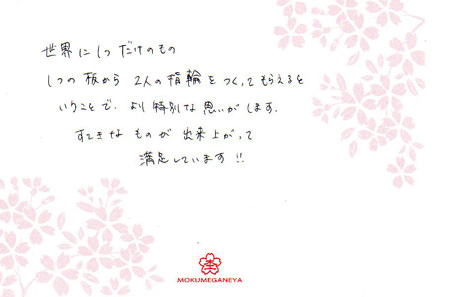 世界に1つだけのもの
1つの板から2人の指輪をつくってもらえると
いうことで、より特別な思いがします。
すてきなものが出来上がって
満足しています!!
MOKUMEGANEYA